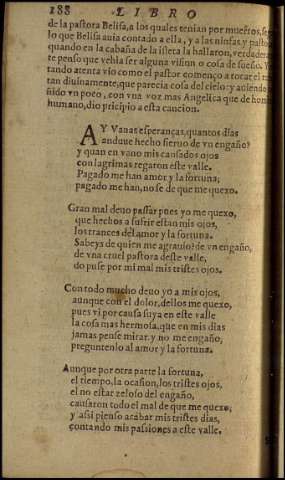 188 LIBRO
de la pastora Belisa, a los quales tenian por muertos, seg
lo que Belisa auia contado a ella, y a las ninfas y pasto
quando en la cabaña de la isleta la hallaron, verdadera
te penso que vehia ser alguna vision o cosa de sueño. Y
tando atenta vio como el pastor començo a tocar el
tan diuinamente, que parecia cosa del cielo: y auiendo
ñido vn poco, con vna voz mas Angelica que de hom
humano, dio pricipio a esta cancion.
AY Vanas esperanças, quantos dias
anduue hecho sieruo de vn engaño?
y quan en vano mis cansados ojos
con lagrimas regaron este valle.
Pagado me han amor y la fortuna,
pagado me han, no se de que me quexo.
Gran mal deuo passar pues yo me quexo,
que hechos a sufrir estan mis ojos,
los trances del amor y la fortuna.
Sabeys de quien me agrauio? de vn engaño,
de vna cruel pastora deste valle,
do puse por mi mal mis tristes ojos.
Con todo mucho deuo yo a mis ojos,
aunque con el dolor, dellos me quexo,
pues vi por causa suya en este valle
la cosa mas hermosa, que en mis dias
jamas pense mirar, y no me engaño,
preguntenlo al amor y la fortuna.
Aunque por otra parte la fortuna,
el tiempo, la ocasion, los tristes ojos,
el no estar zeloso del engaño,
causaron todo el mal de que me quexo,
y assi pienso acabar mis tristes dias,
contando mis passiones a este valle.